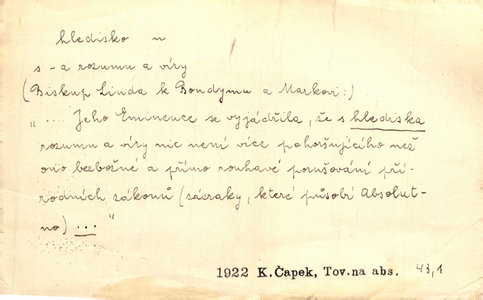 hledisko n
s-a rozumu a víry
(Biskup Linda k Bondymu a Markovi:)
"....Jeho Eminence se vyjádřila, že s hlediska
rozumu a víry nic není více pohoršujícího než
ono bezbožné a přímo rouhavé porušování pří-
rodních zákonů (zázraky, které působí Absolut-
no)...."
1922 K.Čapek, Tov.na abs. 43,1